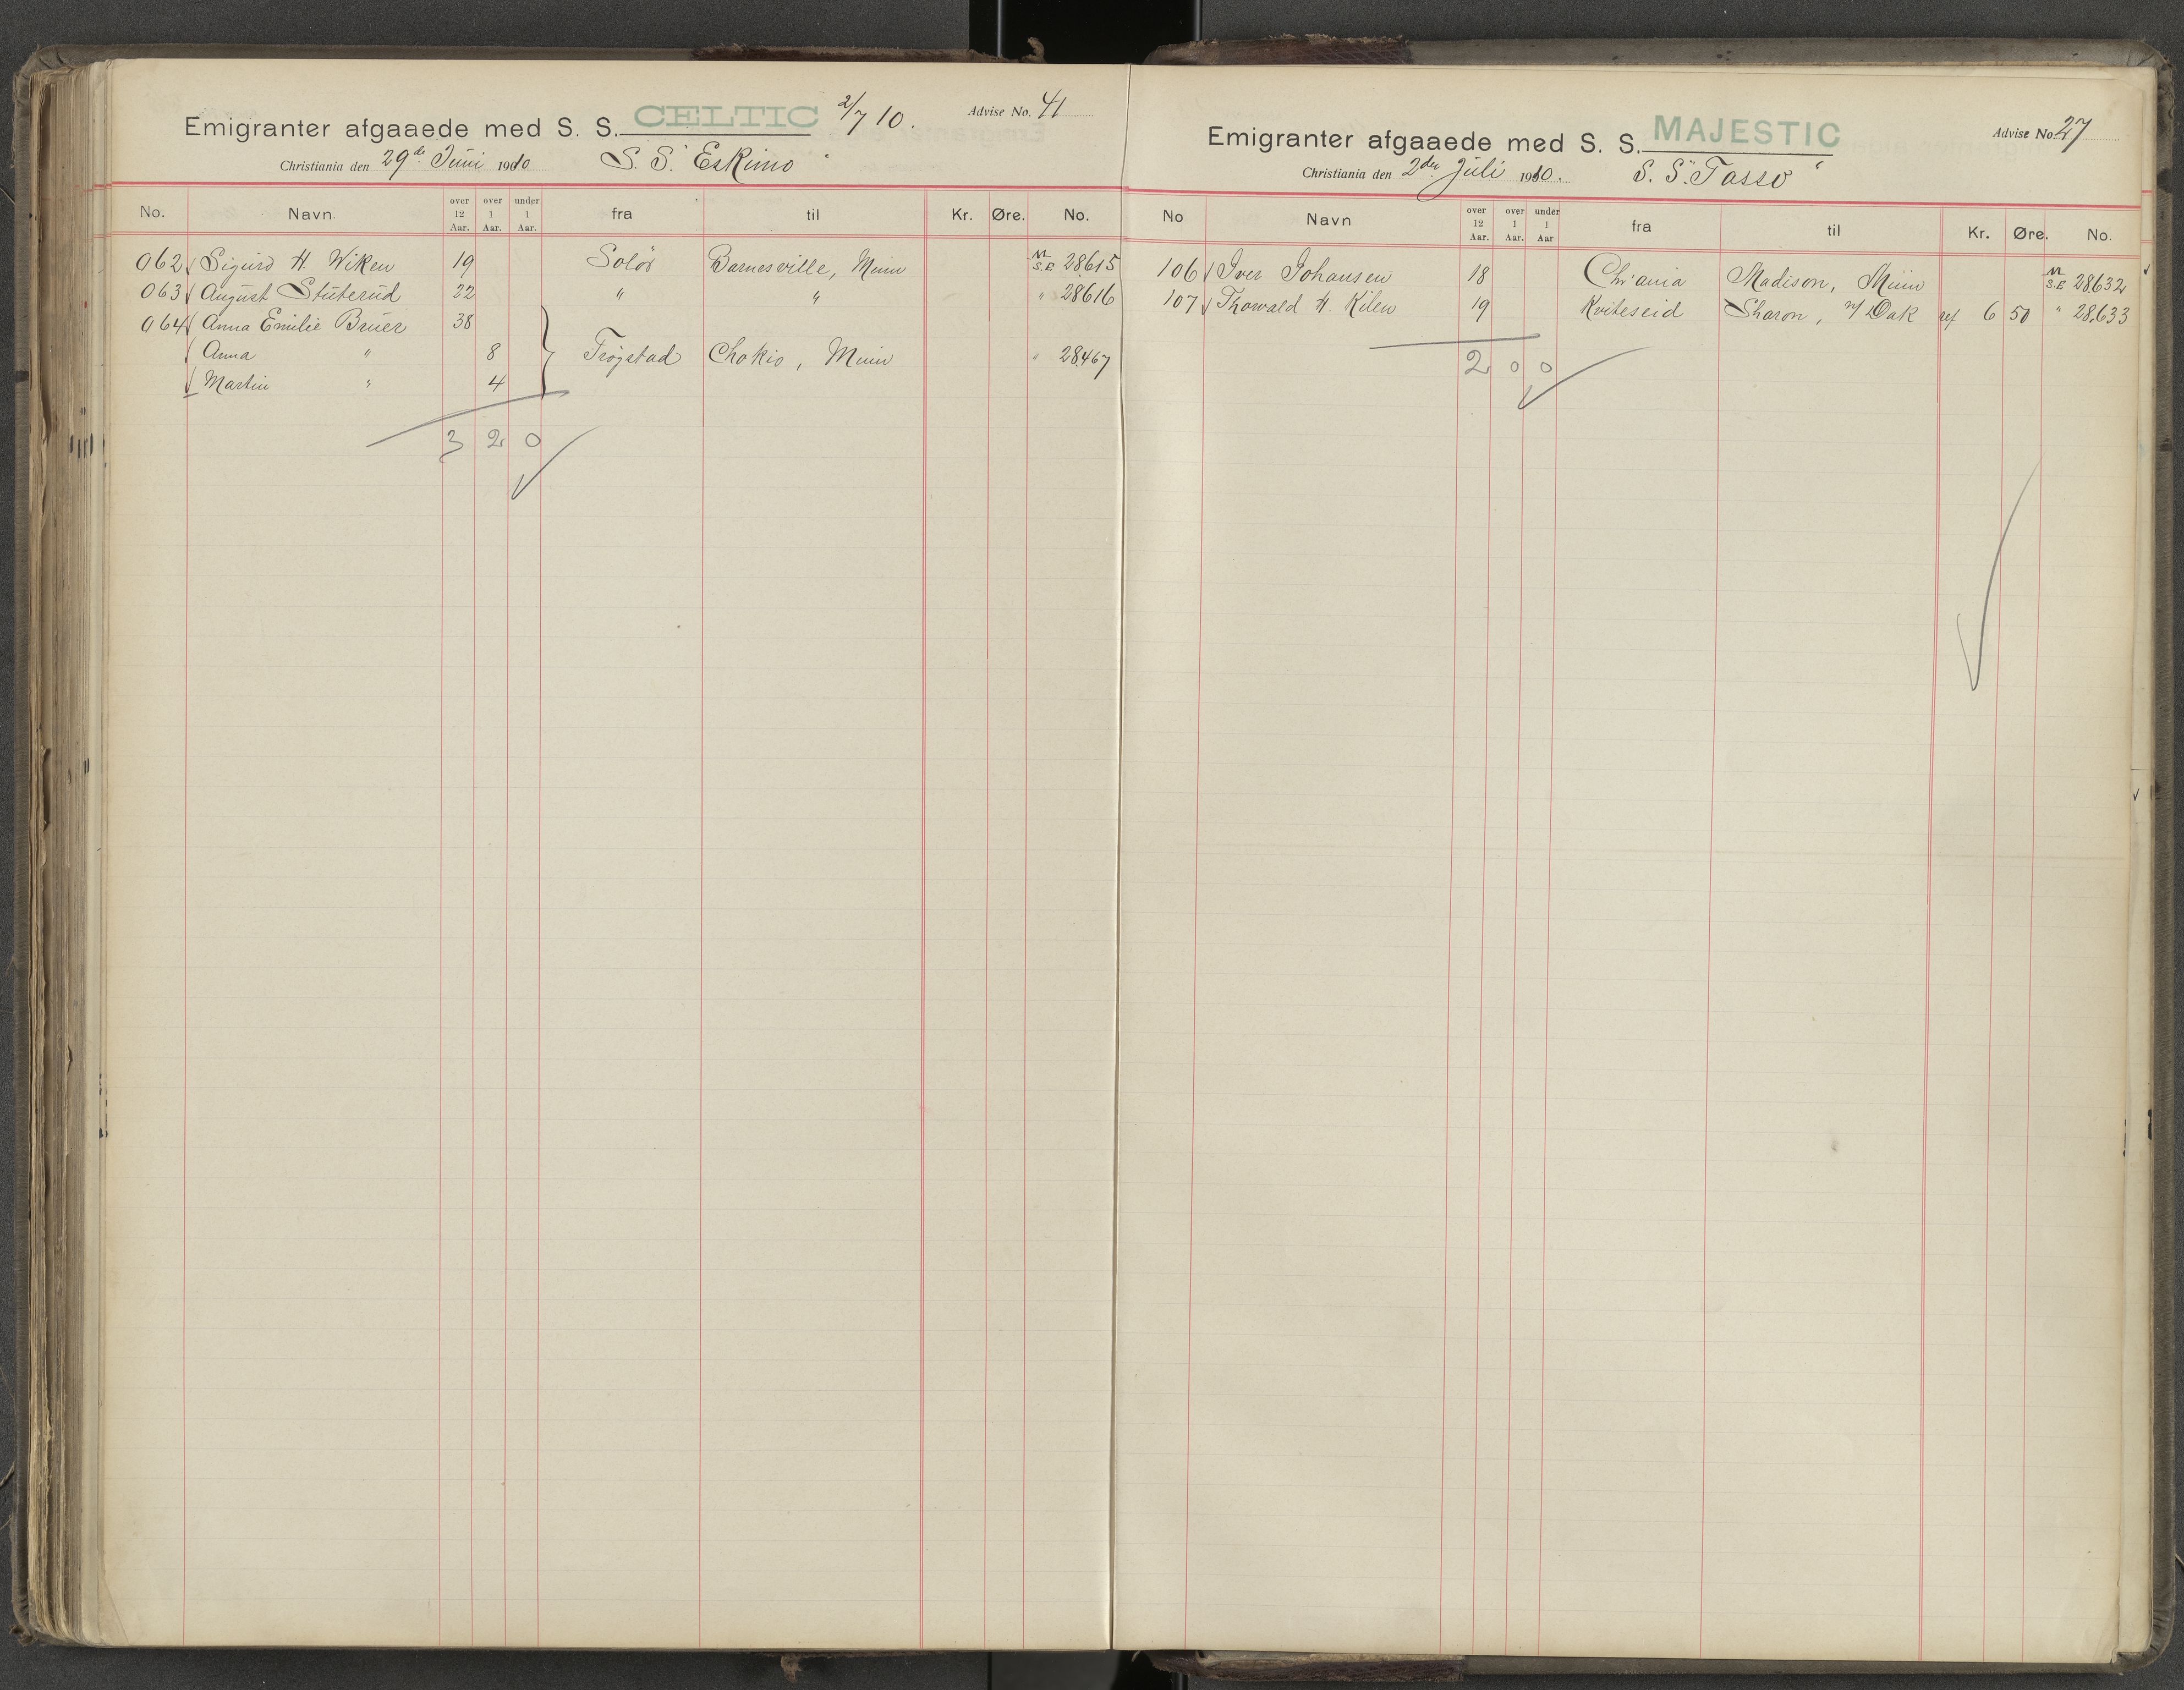 Emigranter afgaaede med S. S. CELTIC 2/7 10. Advise No. 41
Christiania den 29de Juni 1910 S. S. Eskimo"
No. Navn. over 12 Aar. over 1 Aar. under 1 Aar. fra til Kr. Øre. No.
062 Sigurd H. Wiken 19 Solør Barnesville, Minn N S.E 28615
063 August Stuterud 22 " " " 28616
064 Anna Emilie Bruer 38
Anna " 8 } Trøgstad Chokio, Minn " 28467
Martin " 4
3 2 0
Emigranter afgaaede med S. S. MAJESTIC Advise No. 27
Christiania den 2den Juli 1910. S. S. "Tasso"
No Navn over 12 Aar. over 1 Aar. under 1 Aar fra til Kr. Øre. No.
106 Iver Johansen 18 Chr'ania Madison, Minn N S.E 28632
107 Thorvald H. Kilen 19 Kviteseid Sharon, N/ Dak ref 6 50 " 28,633
2 0 0